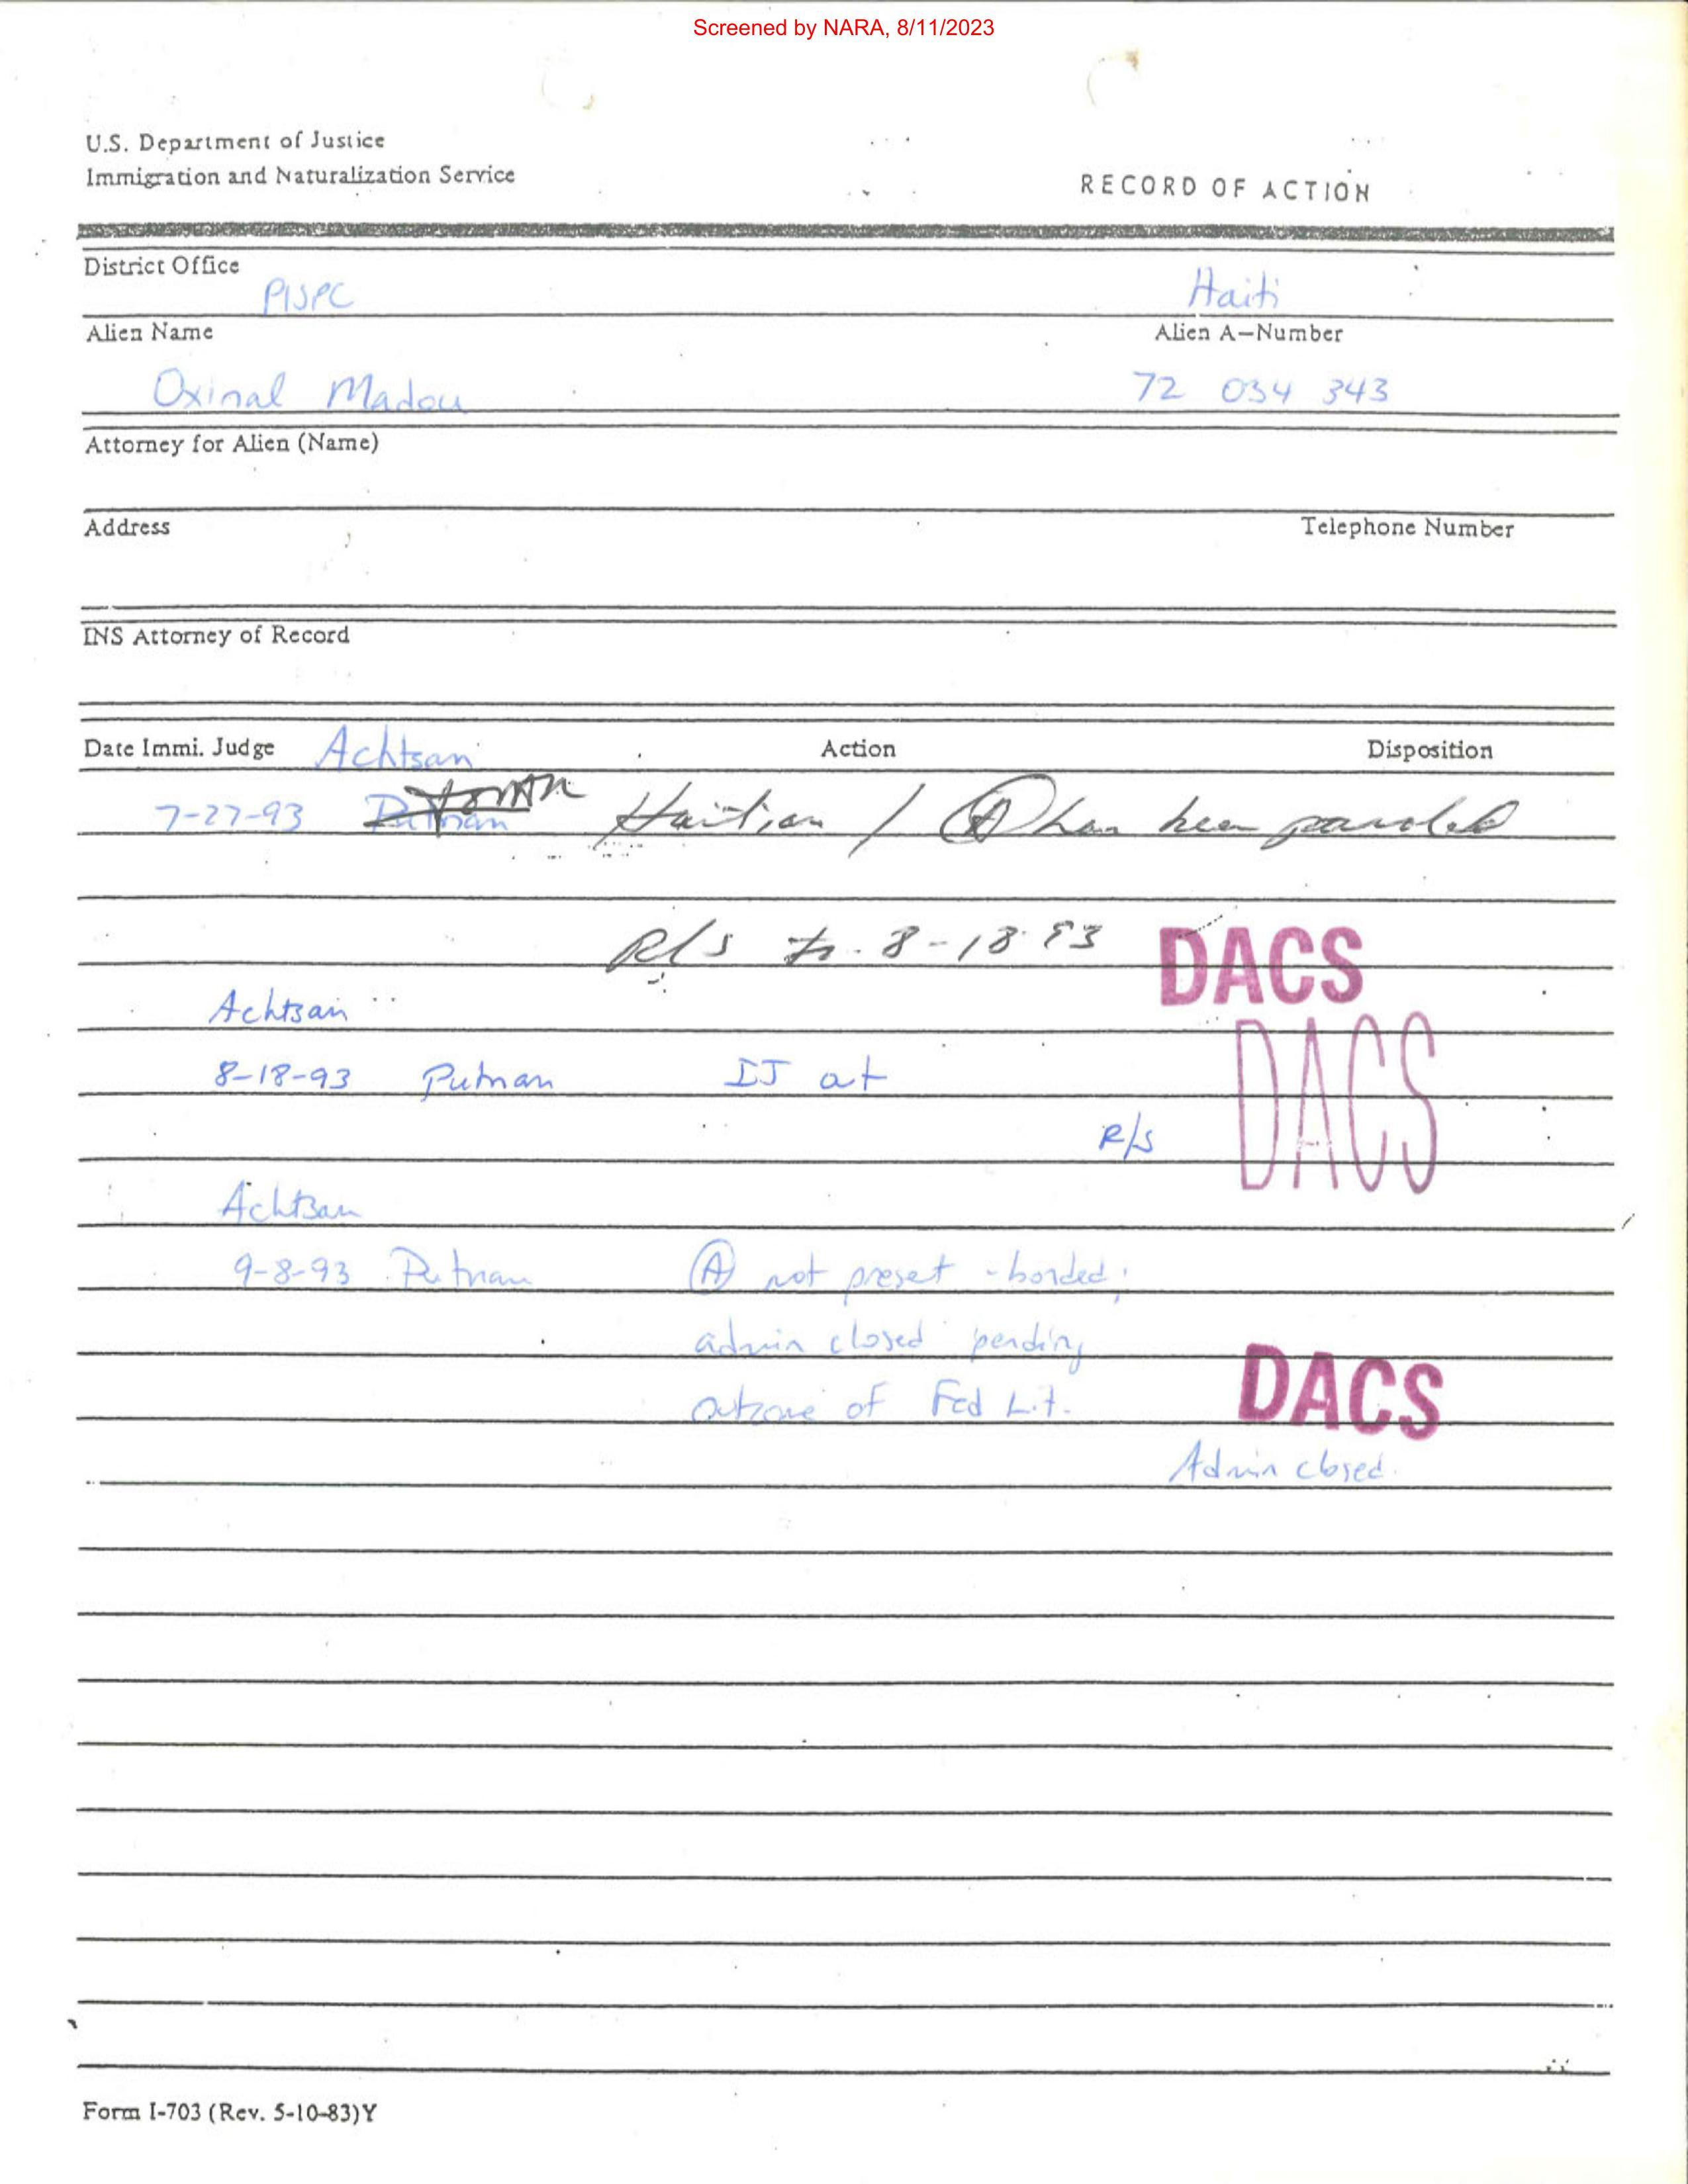 Screened by NARA, 8/11/2023
U.S. Department of Justice
Immigration and Naturalization Service
RECORD OF ACTION
District Office
PISPC
Haiti
Alien Name
Alien A-Number
Oxinal Madou
72 034 343
Attorney for Alien (Name)
Address
Telephone Number
INS Attorney of Record
Date Immi. Judge Achtsan Action Disposition
7-27-93 Haitian / A has been paroled
R/S to 8-18-93 DACS
Achtsan
DACS
8-18-93 Putnan IJ at
R/S
Achtsan
9-8-93 Putnan A not preset - bonded;
admin closed pending
outcome of Fed Lit.
DACS
Admin closed.
Form I-703 (Rev. 5-10-83)Y